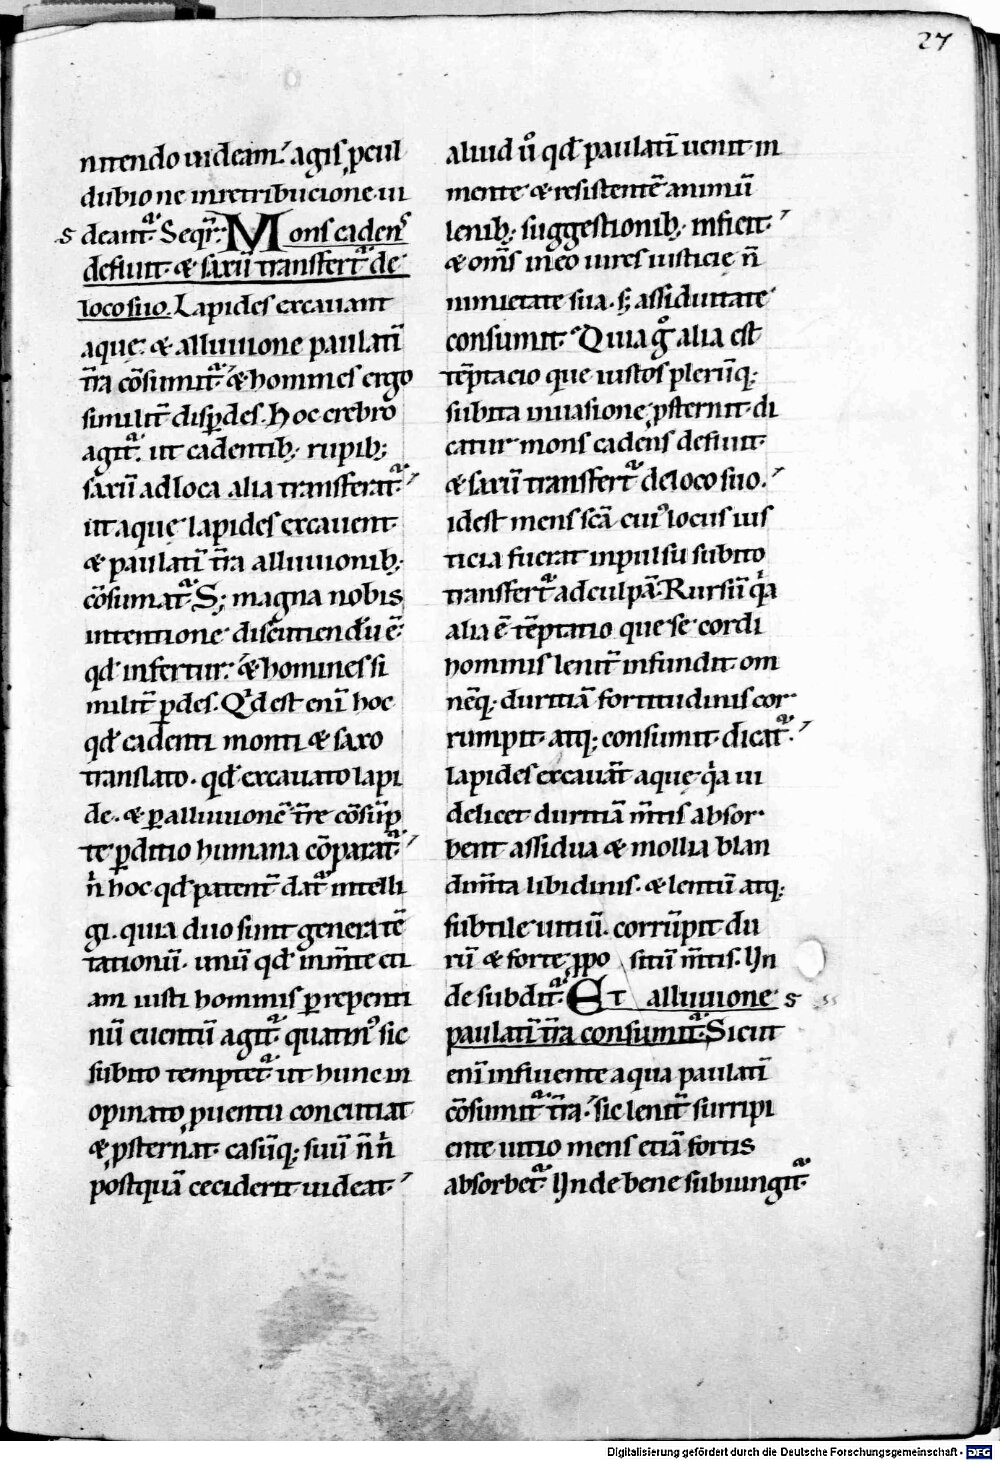 27
nitendo uideam.' agis, ꝓcul
dubio ne in retribucione ui
s deant᷑. Seqr̅: Mons cadens
defluit. & saxũ transfert᷑ de
loco suo. Lapides excauant
aquę: & alluuione paulatĩ
t̃ra cõsumit᷑. & homines ergo
similit̃ disꝑdes. Hoc crebro
agit᷑. ut cadentib; rupib;
saxũ ad loca alia transferat᷑.
ut aquę lapides excauent.
& paulatĩ t̃ra alluuionib;
cõsumat᷑. S; magna nobis
intentione discutiendũ ẽ.
qđ infertur: & homines si
milit̃ ꝑdes. Qͥd est enĩ hoc
qđ cadenti monti & saxo
translato. qđ excauato lapi
de. & ꝑ alluuionẽ t̃rę cõsũp
te ꝑditio humana cõparat᷑.
ñ hoc qđ patent̃ dat᷑ intelli
gi. quia duo sunt genera tẽ
tationũ. unũ qđ in m̃te eti
am iusti hominis ꝑ repenti
nũ euentũ agit᷑. quatinꝰ sic
subito temptet᷑ ut hunc in
opinato ꝓuentu concutiat
& ꝓsternat. casũq; suũ ñ ñ
postquã ceciderit uideat.
aliud ů qđ paulatĩ uenit in
mente. & resistentẽ animũ
lenib; suggestionib; inficit.
& om̃s in eo uires iusticię ñ
nimietate sua. s; assiduitate
consumit. Quia gͦ alia est
tẽptacio que iustos plerũq;
subita inuasione ꝓsternit. di
catur mons cadens defluit.
& saxũ transfert᷑ de loco suo.
idest mens sc̃a cuiꝰ locus ius
ticia fuerat inpulsu subito
transfert᷑ ad culpã. Rursũ qͥa
alia ẽ tẽptatio que se cordi
hominis lenit̃ infundit. om
nẽq; duritiã fortitudinis cor
rumpit. atq; consumit. dicat᷑.
lapides excauãt aquę. qͥa ui
delicet duritiã m̃tis absor
bent assidua & mollia blan
dim̃ta libidinis. & lentũ atq;
subtile uitiũ. corrũpit du
rũ & forte ꝓpo sitũ m̃tis. Un
de subdit᷑. Et alluuione s
paulatĩ t̃ra consumit᷑. Sicut
enĩ influente aqua paulatĩ
cõsumit᷑ t̃ra. sic lenit̃ surripi
ente uitio mens etiã fortis
absorbet᷑. Unde bene subiungit᷑.
Digitalisierung gefördert durch die Deutsche Forschungsgemeinschaft - DFG